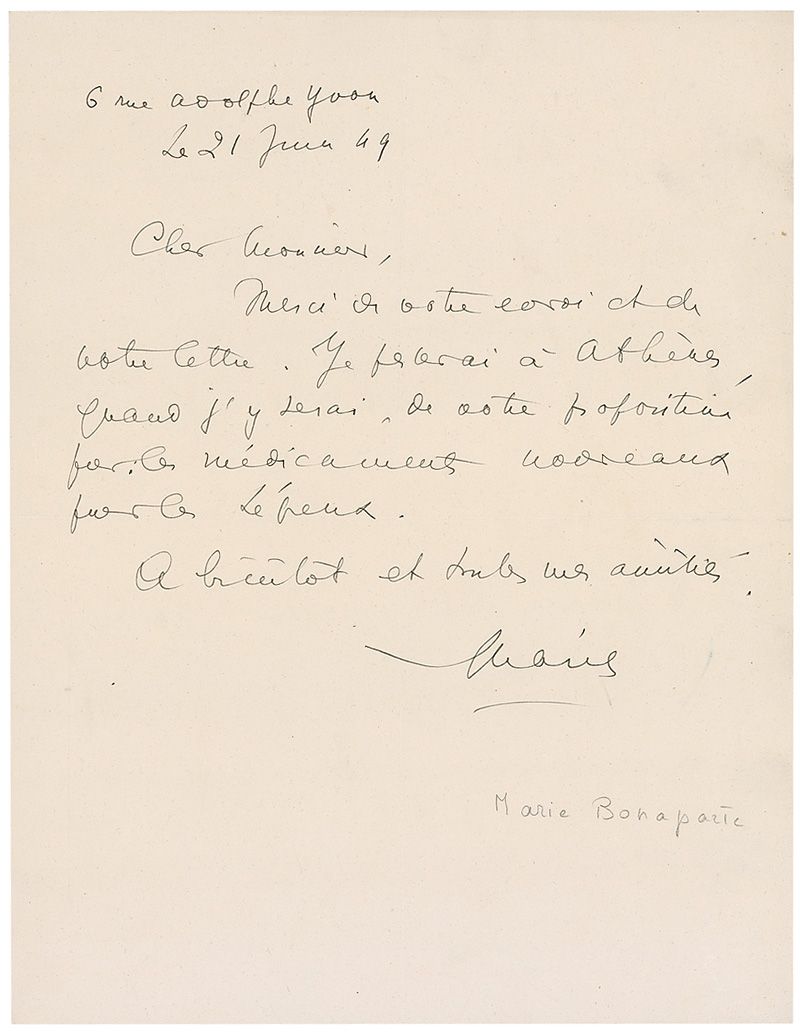 6 rue Adolphe Yvon
Le 21 Juin 49
Cher Monsieur,
Merci de votre envoi et de
votre lettre. Je parlerai à Athènes,
quand j'y serai, de votre proposition
pour les médicaments nouveaux
pour les Lépreux.
A bientôt et toutes mes amitiés.
Marie
Marie Bonaparte